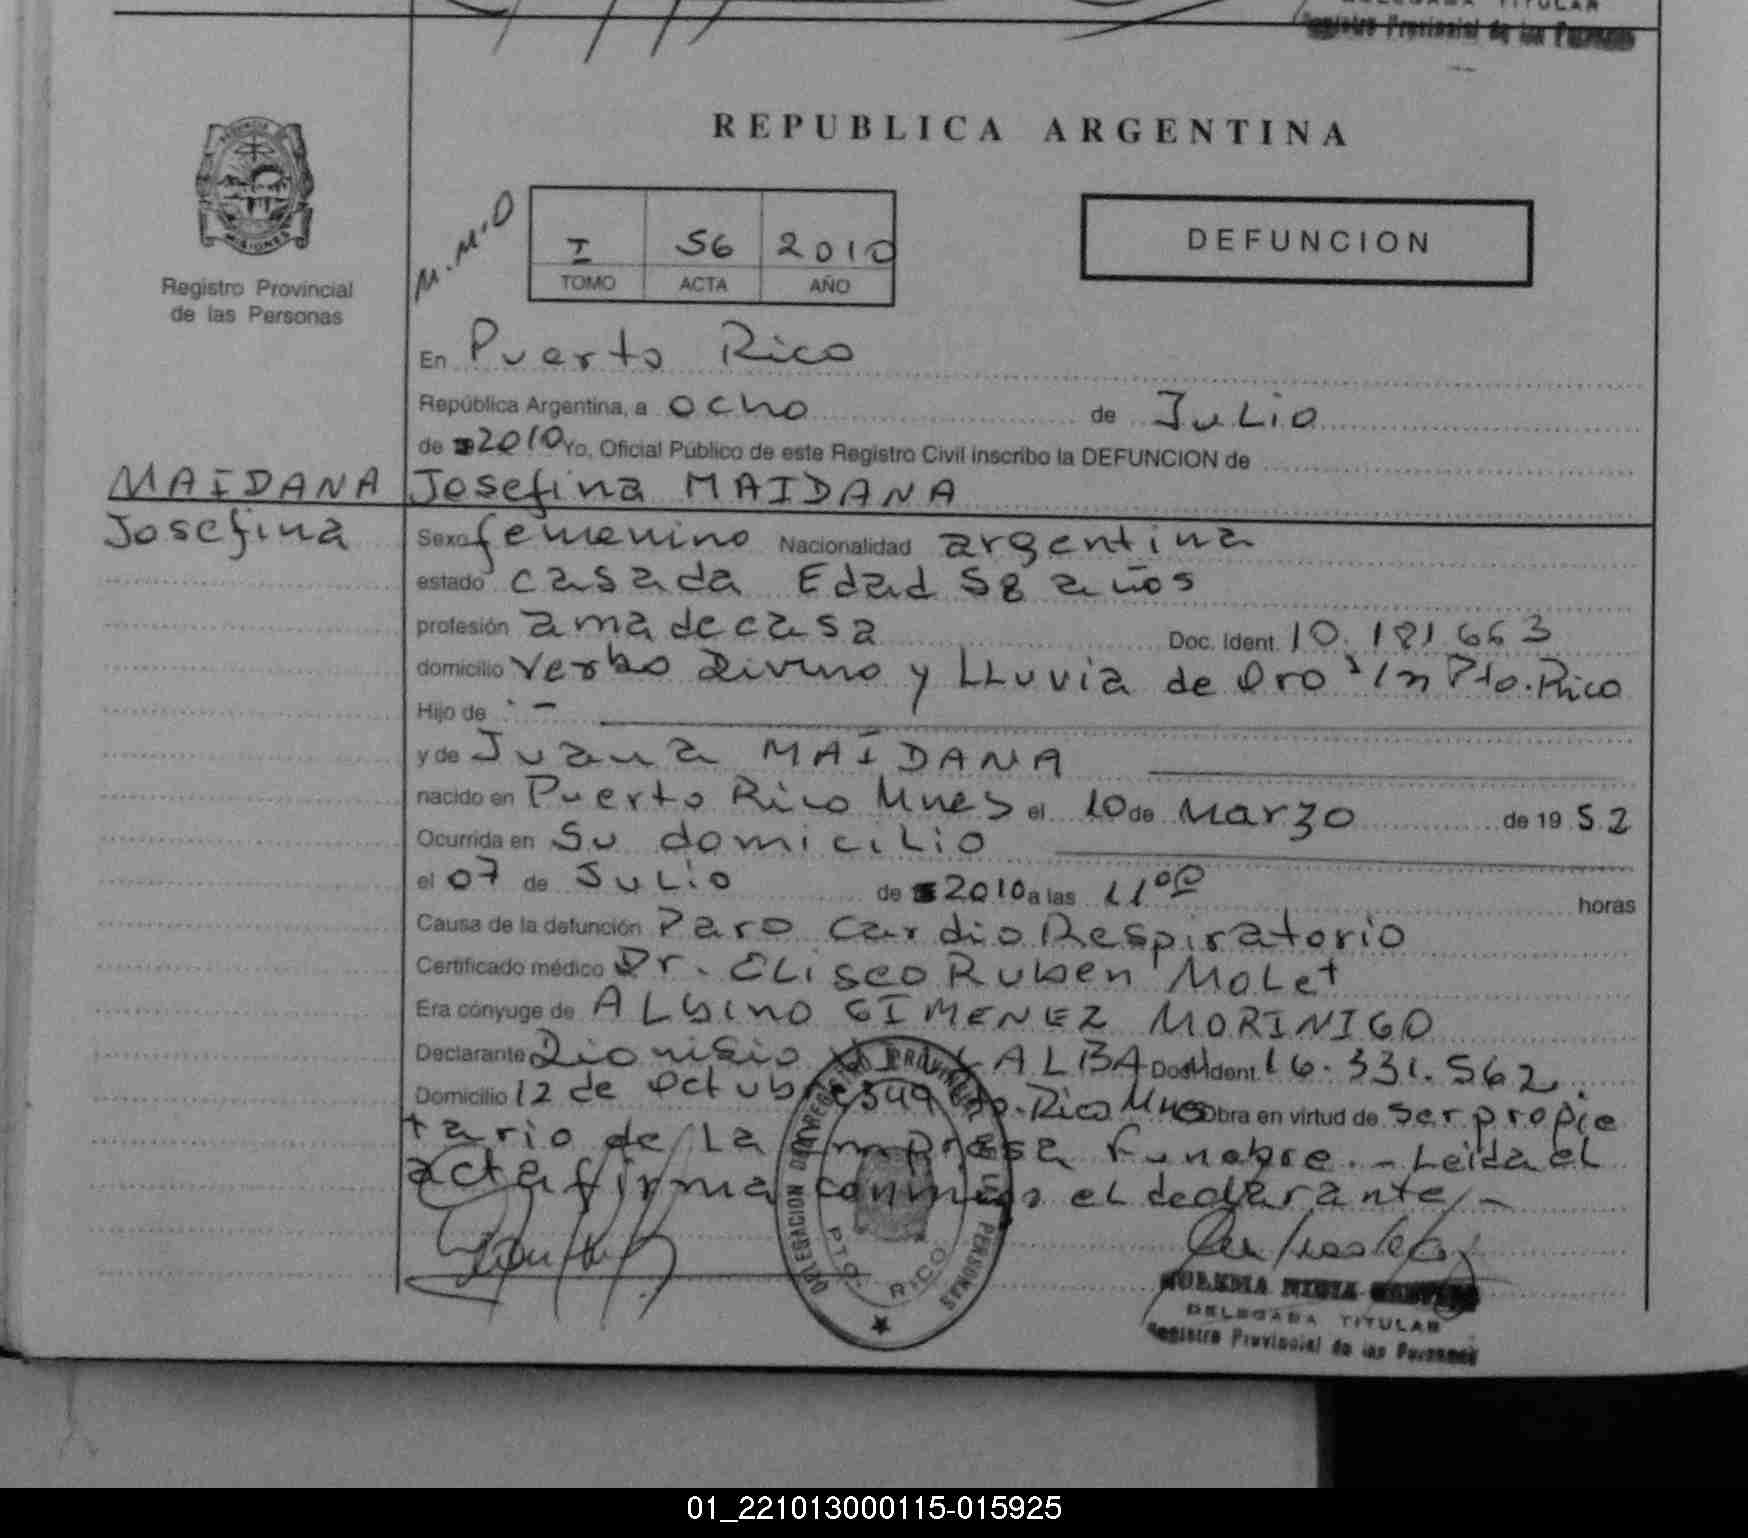 DELEGADA TITULAR
Registro Provincial de las Personas
PROVINCIA
MISIONES
Registro Provincial
de las Personas
REPUBLICA ARGENTINA
M.M.O
I 56 2010
TOMO ACTA AÑO
DEFUNCION
En Puerto Rico
República Argentina, a ocho de Julio
de 2010 Yo, Oficial Público de este Registro Civil inscribo la DEFUNCION de
MAIDANA Josefina MAIDANA
Josefina
Sexo femenino Nacionalidad argentina
estado casada Edad 58 años
profesión ama de casa Doc. Ident. 10.181663
domicilio Verbo Divino y LLuvia de Oro s/n Pto. Rico
Hijo de -
y de Juana MAIDANA
nacido en Puerto Rico Mnes el 10 de Marzo de 19 52
Ocurrida en Su domiciLio
el 07 de JuLio de 2010 a las 1100 horas
Causa de la defunción Paro Cardio Respiratorio
Certificado médico Dr. ELiseo Ruben MoLet
Era cónyuge de ALbino GIMENEZ MORINIGO
Declarante Dionisio VILLALBA Doc. Ident. 16.331.562
Domicilio 12 de Octubre 349 Pto. Rico Mnes Obra en virtud de ser propie
tario de La Empresa Funebre.- Leida el
acta firma conmigo el declarante,-
DELEGACION DEL REGISTRO PROVINCIAL DE LAS PERSONAS
PTO. RICO
DELEGADA TITULAR
Registro Provincial de las Personas
01_221013000115-015925